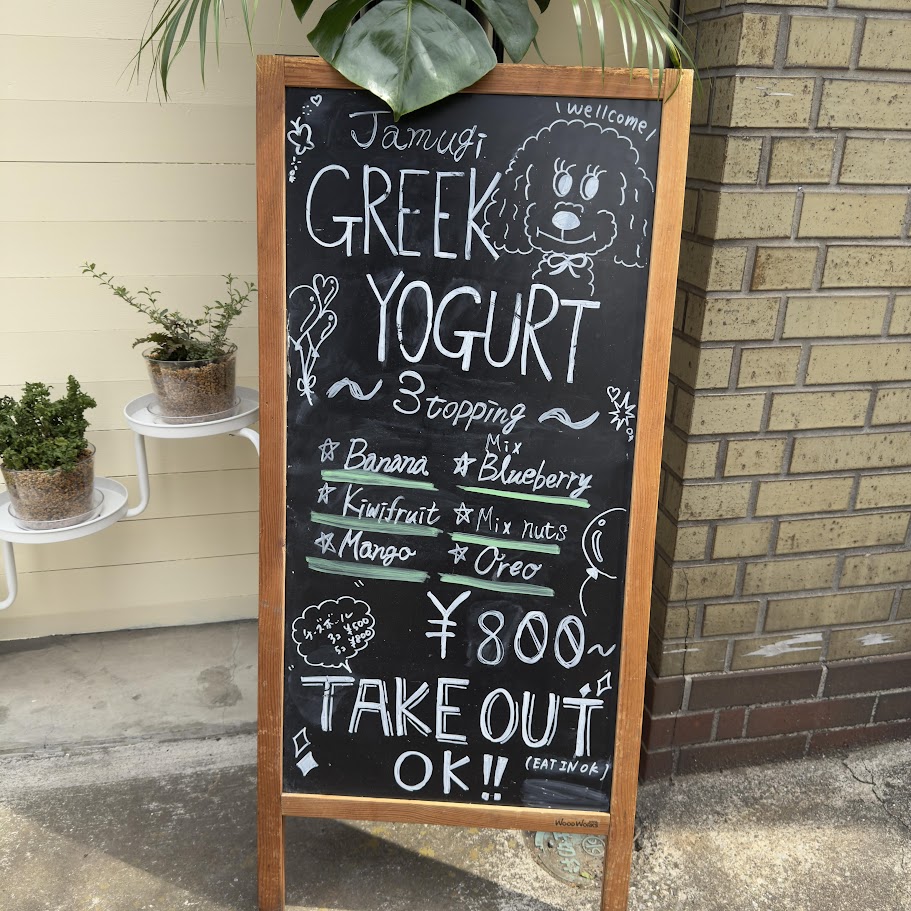 \ Wellcome! /
Jamugi
GREEK
YOGURT
~ 3 topping ~
☆ Banana
☆ Mix Blueberry
☆ Kiwifruit
☆ Mix nuts
☆ Mango
☆ Oreo
¥800~
チーズボール
3コ ¥500
5コ ¥800
TAKE OUT
OK!!
(EAT IN OK)
WOOD WORKS